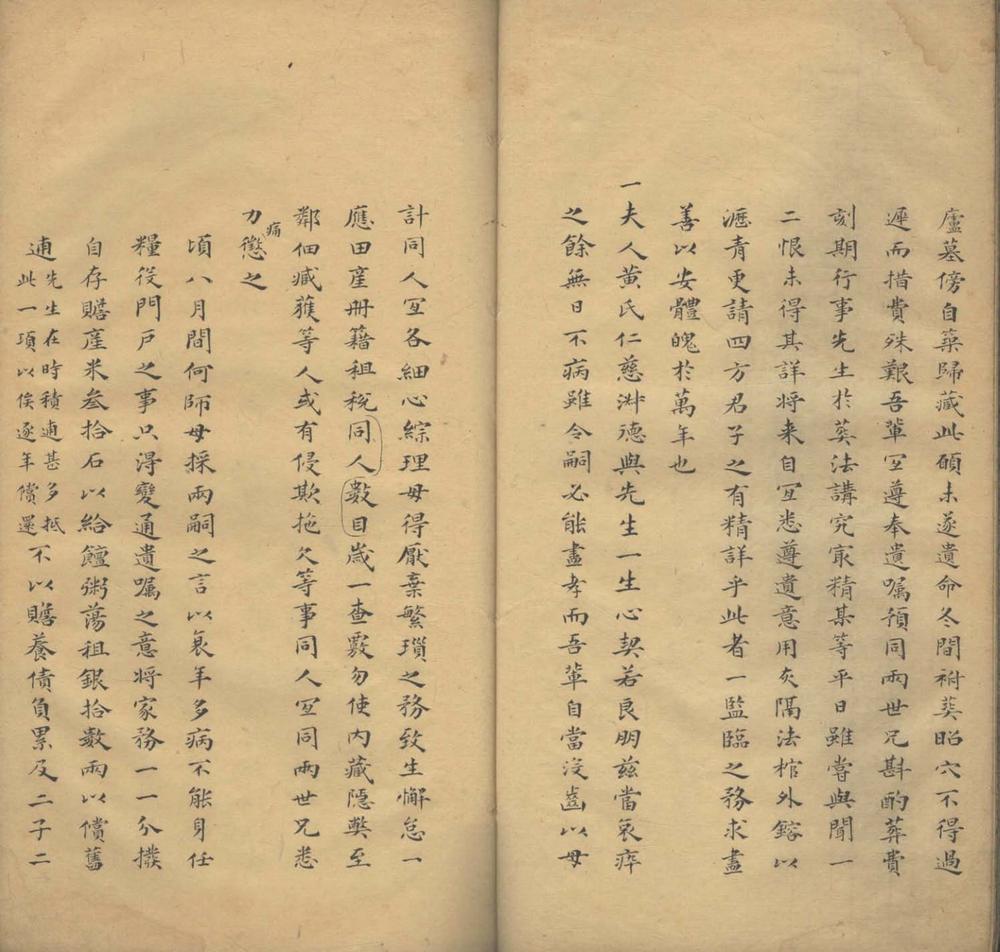 廬墓傍自築歸藏此頋未遂遺命冬間祔葬昭穴不得過
遲而措費殊艱吾輩宜遵奉遺嘱預同兩世兄斟酌葬費
刻期行事先生扵葬法講究㝡精某等平日雖嘗與聞一
二恨未得其詳将来自宜悉遵遺意用灰隔法棺外鎔以
瀝青更請四方君子之有精詳乎此者一監臨之務求盡
善以安體魄扵萬年也
一夫人黃氏仁慈淑德與先生一生心契若良朋兹當哀瘁
之餘無日不病雖令嗣必能盡孝而吾輩自當沒齒以母
計同人宜各細心綜理毋得厭棄繁瑣之務致生懈怠一
應田產冊籍租稅同人數目歲一查覈勿使内藏隱弊至
鄰佃臧獲等人或有侵欺拖欠等事同人宜同兩世兄悉
力痛懲之
頃八月間何師母採兩嗣之言以衰年多病不能身任
糧役門戶之事只得變通遺嘱之意将家務一一分撥
自存贍產米叁拾石以給饘粥蕩租銀拾數兩以償舊
逋先生在時積逋甚多抵此一項以俟逐年償還不以贍養債負累及二子二